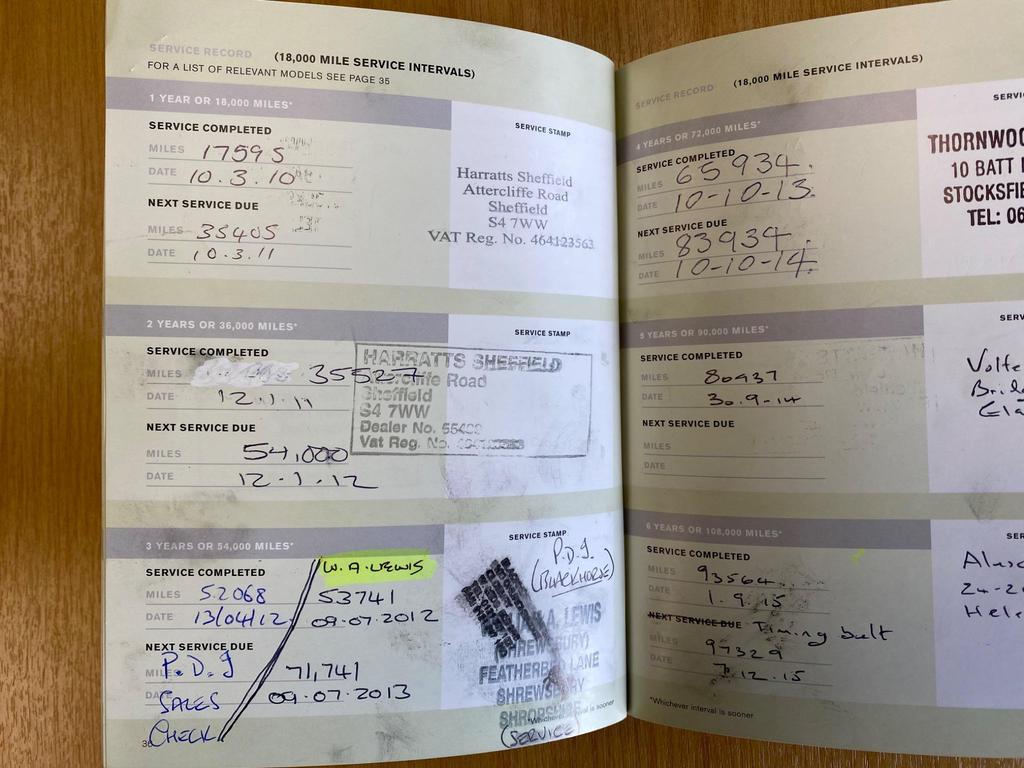 SERVICE RECORD (18,000 MILE SERVICE INTERVALS)
FOR A LIST OF RELEVANT MODELS SEE PAGE 35
1 YEAR OR 18,000 MILES*
SERVICE STAMP
SERVICE COMPLETED
MILES 17595
DATE 10.3.10
NEXT SERVICE DUE
MILES 35405
DATE 10.3.11
Harratts Sheffield
Attercliffe Road
Sheffield
S4 7WW
VAT Reg. No. 464123563
2 YEARS OR 36,000 MILES*
SERVICE STAMP
SERVICE COMPLETED
MILES 35527
DATE 12.1.11
NEXT SERVICE DUE
MILES 54,000
DATE 12-1-12
HARRATTS SHEFFIELD
Attercliffe Road
Sheffield
S4 7WW
Dealer No.
Vat Reg. No.
3 YEARS OR 54,000 MILES*
SERVICE STAMP
SERVICE COMPLETED W.A.LEWIS
MILES 52068 53741
DATE 13/04/12 09.07.2012
NEXT SERVICE DUE
MILES P.D.I 71,741
DATE SALES 09.07.2013
CHECK
P.D.I.
(BLACKHORSE)
A. LEWIS
(SHREWSBURY)
FEATHERBED LANE
SHREWSBURY
SHROPSHIRE
(SERVICE)
*Whichever interval is sooner
36
SERVICE RECORD (18,000 MILE SERVICE INTERVALS)
4 YEARS OR 72,000 MILES*
SERVI
SERVICE COMPLETED
MILES 65934.
DATE 10-10-13.
NEXT SERVICE DUE
MILES 83934.
DATE 10-10-14.
THORNWOO
10 BATT
STOCKSFIE
TEL: 06
5 YEARS OR 90,000 MILES*
SERV
SERVICE COMPLETED
MILES 80937
DATE 30.9-14
NEXT SERVICE DUE
MILES
DATE
Volte
Brid
Ela
6 YEARS OR 108,000 MILES*
SERV
SERVICE COMPLETED
MILES 93564
DATE 1.9.15
NEXT SERVICE DUE Timing belt
MILES 97329
DATE 7.12.15
24-2
Hele
*Whichever interval is sooner